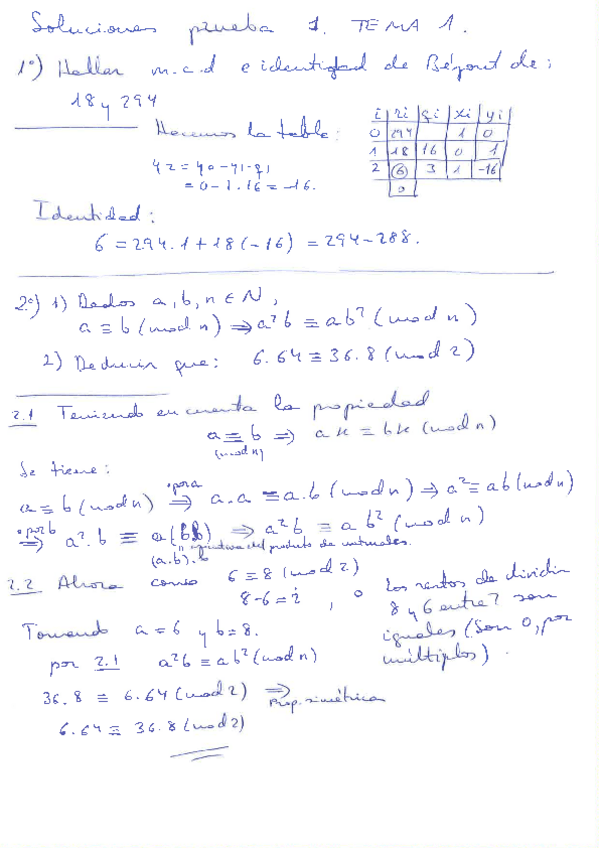 Soluciones prueba 1. TEMA 1.
1º) Hallar m.c.d e identidad de Bézout de:
18 y 294
Hacemos la tabla:
i | ri | qi | xi | yi
0 | 294 | | 1 | 0
1 | 18 | 16 | 0 | 1
2 | 6 | 3 | 1 | -16
0
y2 = y0 - y1·q1
= 0-1.16 = -16.
Identidad:
6 = 294.1 + 18(-16) = 294-288.
2º) 1) Dados a, b, n ∈ N,
a ≡ b (mod n) ⇒ a²b ≡ ab² (mod n)
2) Deducir que: 6.64 ≡ 36.8 (mod 2)
2.1 Teniendo en cuenta la propiedad
a ≡ b ⇒ ak ≡ bk (mod n)
(mod n)
Se tiene:
a ≡ b (mod n) ⇒ a.a ≡ a.b (mod n) ⇒ a² ≡ ab (mod n)
·por a
·por b
⇒ a².b ≡ a(b.b) ⇒ a²b ≡ ab² (mod n)
(a.b).b
del producto de naturales.
2.2 Ahora como 6 ≡ 8 (mod 2)
8-6 = 2̇, o los restos de dividir
8 y 6 entre 2 son
iguales (son 0, por
múltiplos).
Tomando a = 6 y b = 8.
por 2.1 a²b ≡ ab² (mod n)
36.8 ≡ 6.64 (mod 2) ⇒
Prop. simétrica
6.64 ≡ 36.8 (mod 2)